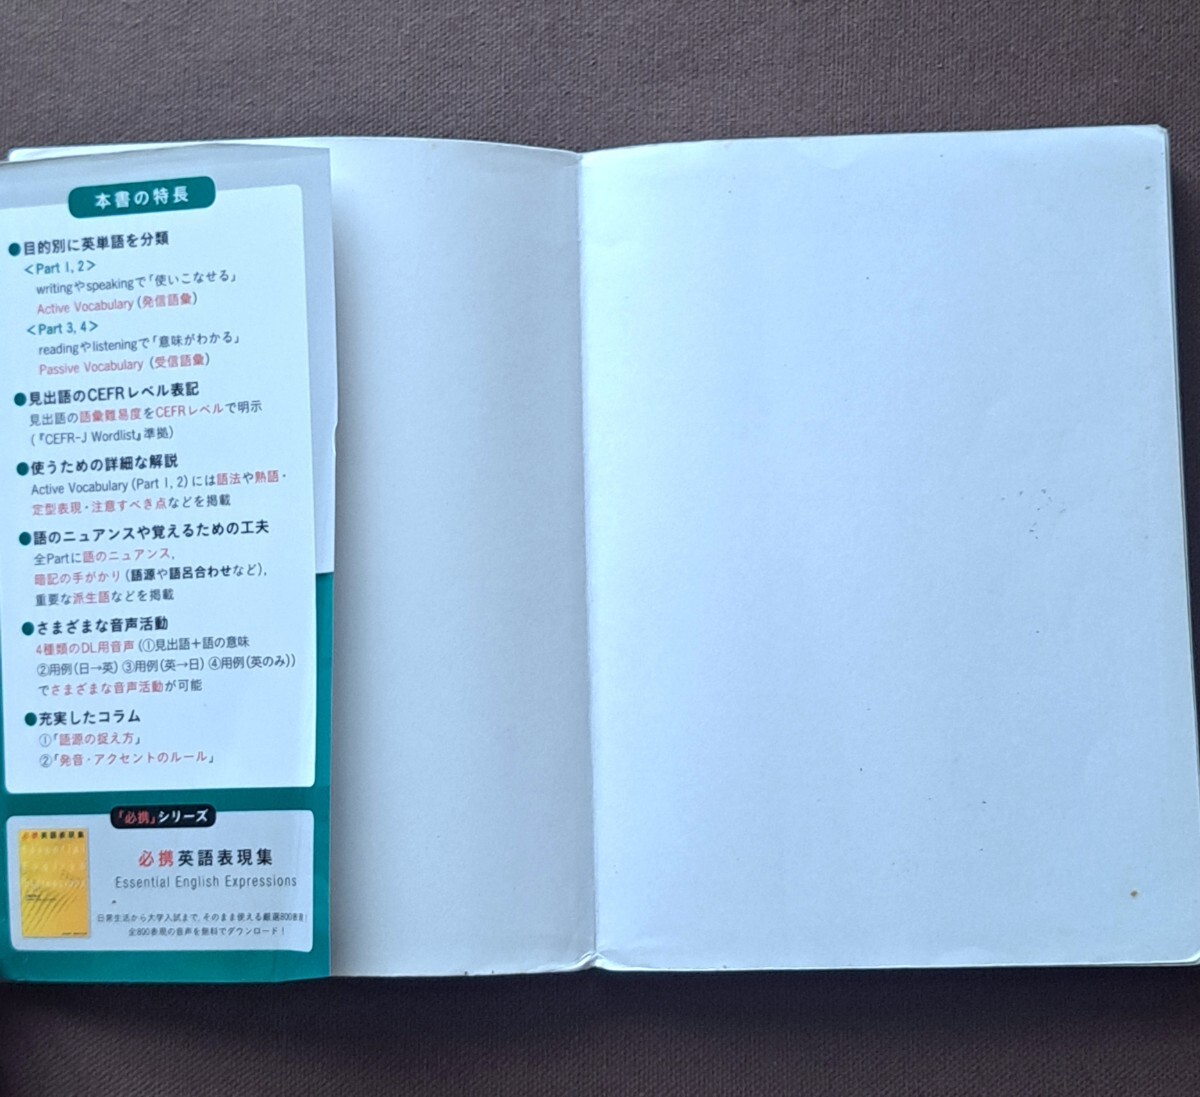 本書の特長
●目的別に英単語を分類
<Part 1, 2>
writingやspeakingで「使いこなせる」
Active Vocabulary (発信語彙)
<Part 3, 4>
readingやlisteningで「意味がわかる」
Passive Vocabulary (受信語彙)
●見出語のCEFRレベル表記
見出語の語彙難易度をCEFRレベルで明示
(『CEFR-J Wordlist』準拠)
●使うための詳細な解説
Active Vocabulary (Part 1, 2) には語法や熟語・
定型表現・注意すべき点などを掲載
●語のニュアンスや覚えるための工夫
全Partに語のニュアンス,
暗記の手がかり (語源や語呂合わせなど),
重要な派生語などを掲載
●さまざまな音声活動
4種類のDL用音声 (①見出語+語の意味
②用例(日→英) ③用例(英→日) ④用例(英のみ))
でさまざまな音声活動が可能
●充実したコラム
①「語源の捉え方」
②「発音・アクセントのルール」
「必携」シリーズ
必携英語表現集
必携英語表現集
Essential English Expressions
日常生活から大学入試まで, そのまま使える厳選800表現!
全800表現の音声を無料でダウンロード!